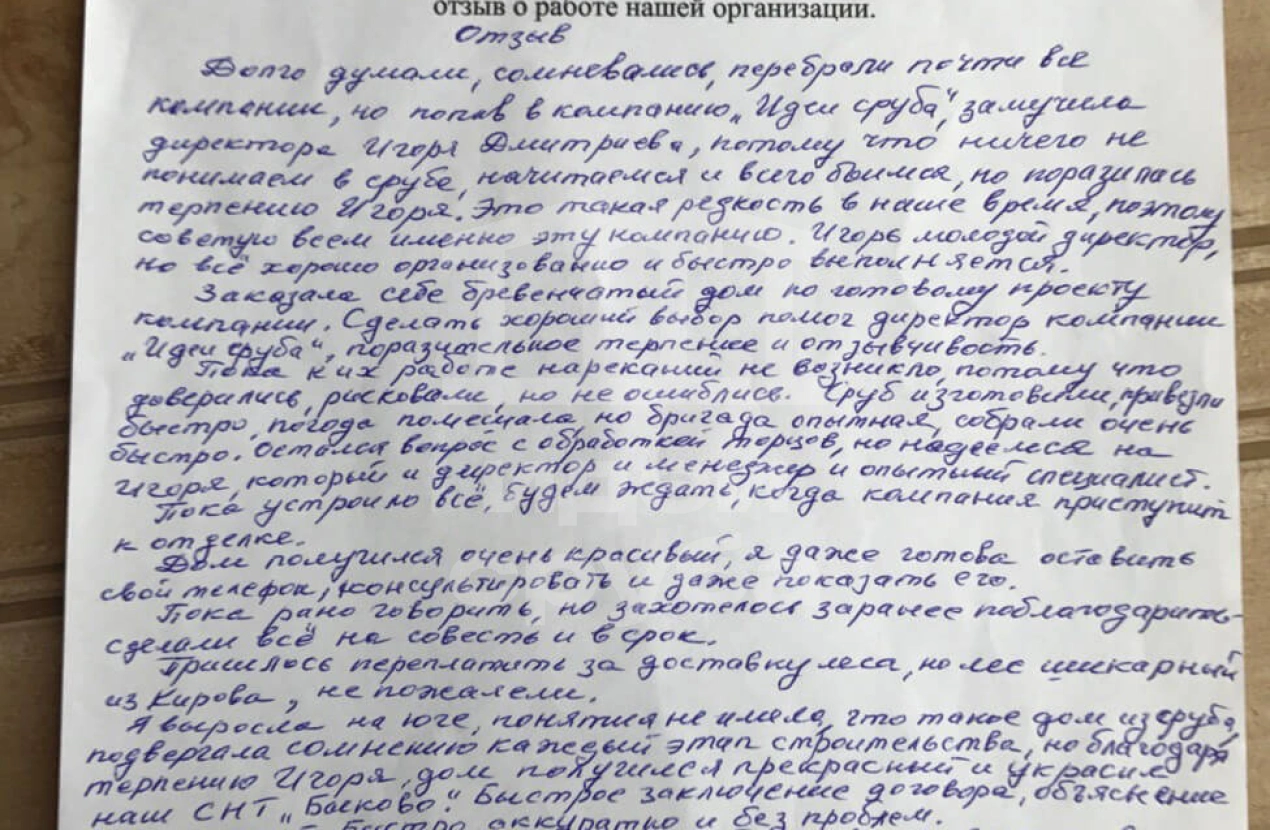 отзыв о работе нашей организации.
Отзыв
Долго думали, сомневались, перебрали почти все
компании, но попав в компанию „Идеи сруба“, замучила
директора Игоря Дмитриева, потому что ничего не
понимаем в срубе, начитаемся и всего боимся, но поразилась
терпению Игоря. Это такая редкость в наше время, поэтому
советую всем именно эту компанию. Игорь молодой директор,
но всё хорошо организованно и быстро выполняется.
Заказала себе бревенчатый дом по готовому проекту
компании. Сделать хороший выбор помог директор компании
„Идеи сруба“, поразительное терпение и отзывчивость.
Пока к их работе нареканий не возникло, потому что
доверились, рисковали, но не ошиблись. Сруб изготовили, привезли
быстро, погода помешала, но бригада опытная, собрали очень
быстро. Остался вопрос с обработкой торцов, но надеемся на
Игоря, который и директор и менеджер и опытный специалист.
Пока устроило всё, будем ждать, когда компания приступит
к отделке.
Дом получился очень красивый, я даже готова оставить
свой телефон, консультировать и даже показать его.
Пока рано говорить, но захотелось заранее поблагодарить-
сделали всё на совесть и в срок.
Пришлось переплатить за доставку леса, но лес шикарный
из Кирова, не пожалели.
Я выросла на юге, понятия не имела, что такое дом из сруба,
подвергала сомнению каждый этап строительства, но благодаря
терпению Игоря, дом получился прекрасный и украсил
наш СНТ „Быково“. Быстрое заключение договора, объяснение
Быстро аккуратно и без проблем.